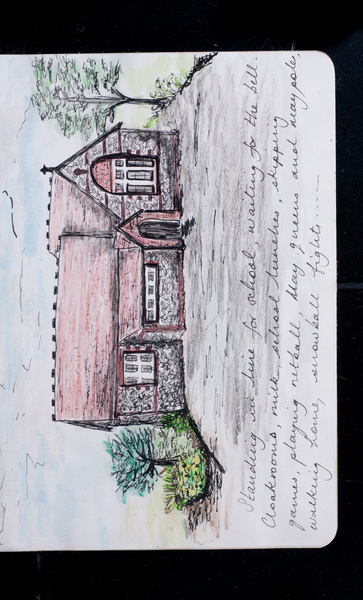 Standing in line for school, waiting for the bell.
Cloakrooms, milk, school lunches, skipping
games, playing netball, May queens and maypoles,
walking home, snowball fights ......